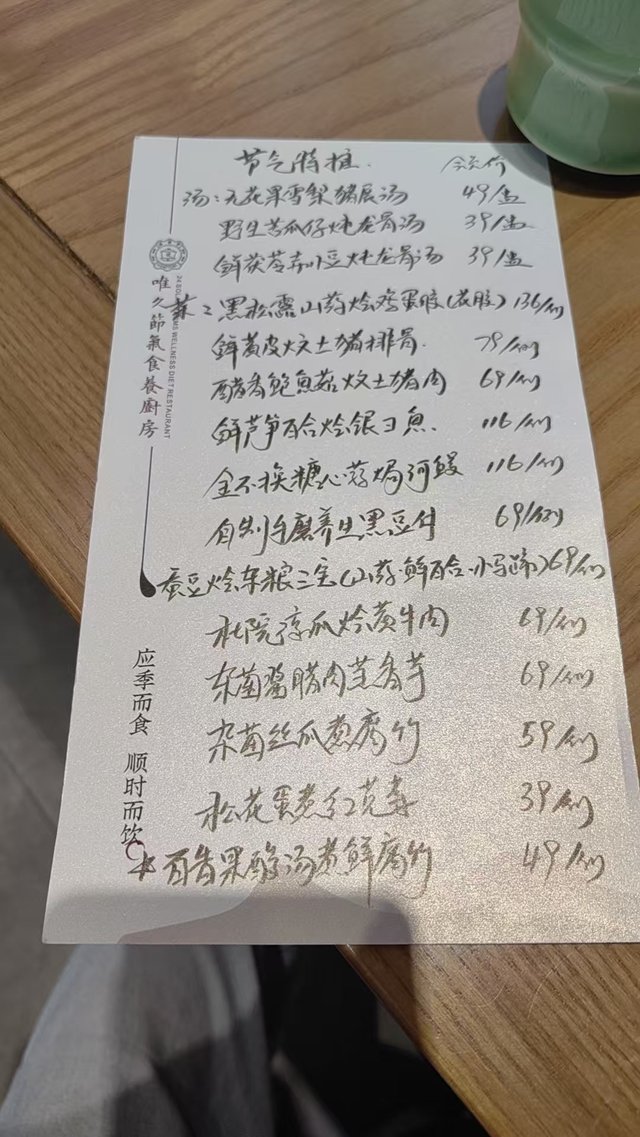 节气特推. 会员价
汤：无花果雪梨猪展汤 49/盅
野生苦瓜仔炖龙骨汤 39/盅
鲜茯苓赤小豆炖龙骨汤 39/盅
菜：黑松露山药烩鸡蛋胶(花胶) 136/例
鲜黄皮炆土猪排骨. 79/例
醋香鲍鱼菇炆土猪肉 69/例
鲜芦笋百合烩银刁鱼. 116/例
金不换糖心蒜焗河鳗 116/例
自制手磨养生黑豆付 69/例
蚕豆烩杂粮三宝(山药.鲜百合.小马蹄) 69/例
凉瓜烩黄牛肉 69/例
杂菌酱腊肉煮香芋 69/例
杂菌丝瓜煮腐竹 59/例
松花蛋煮红苋 39/例
百香果酸汤煮鲜腐竹 49/例
唯久節氣食養廚房
WELLNESS DIET RESTAURANT
应季而食 顺时而饮